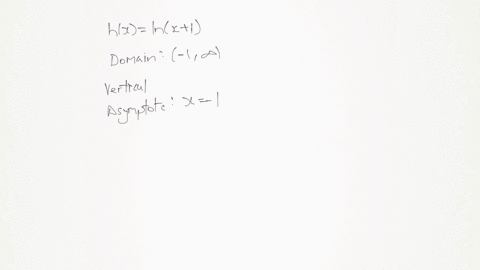 h(x)=ln(x+1)
Domain: (-1, ∞)
Vertical
Asymptote: x=-1